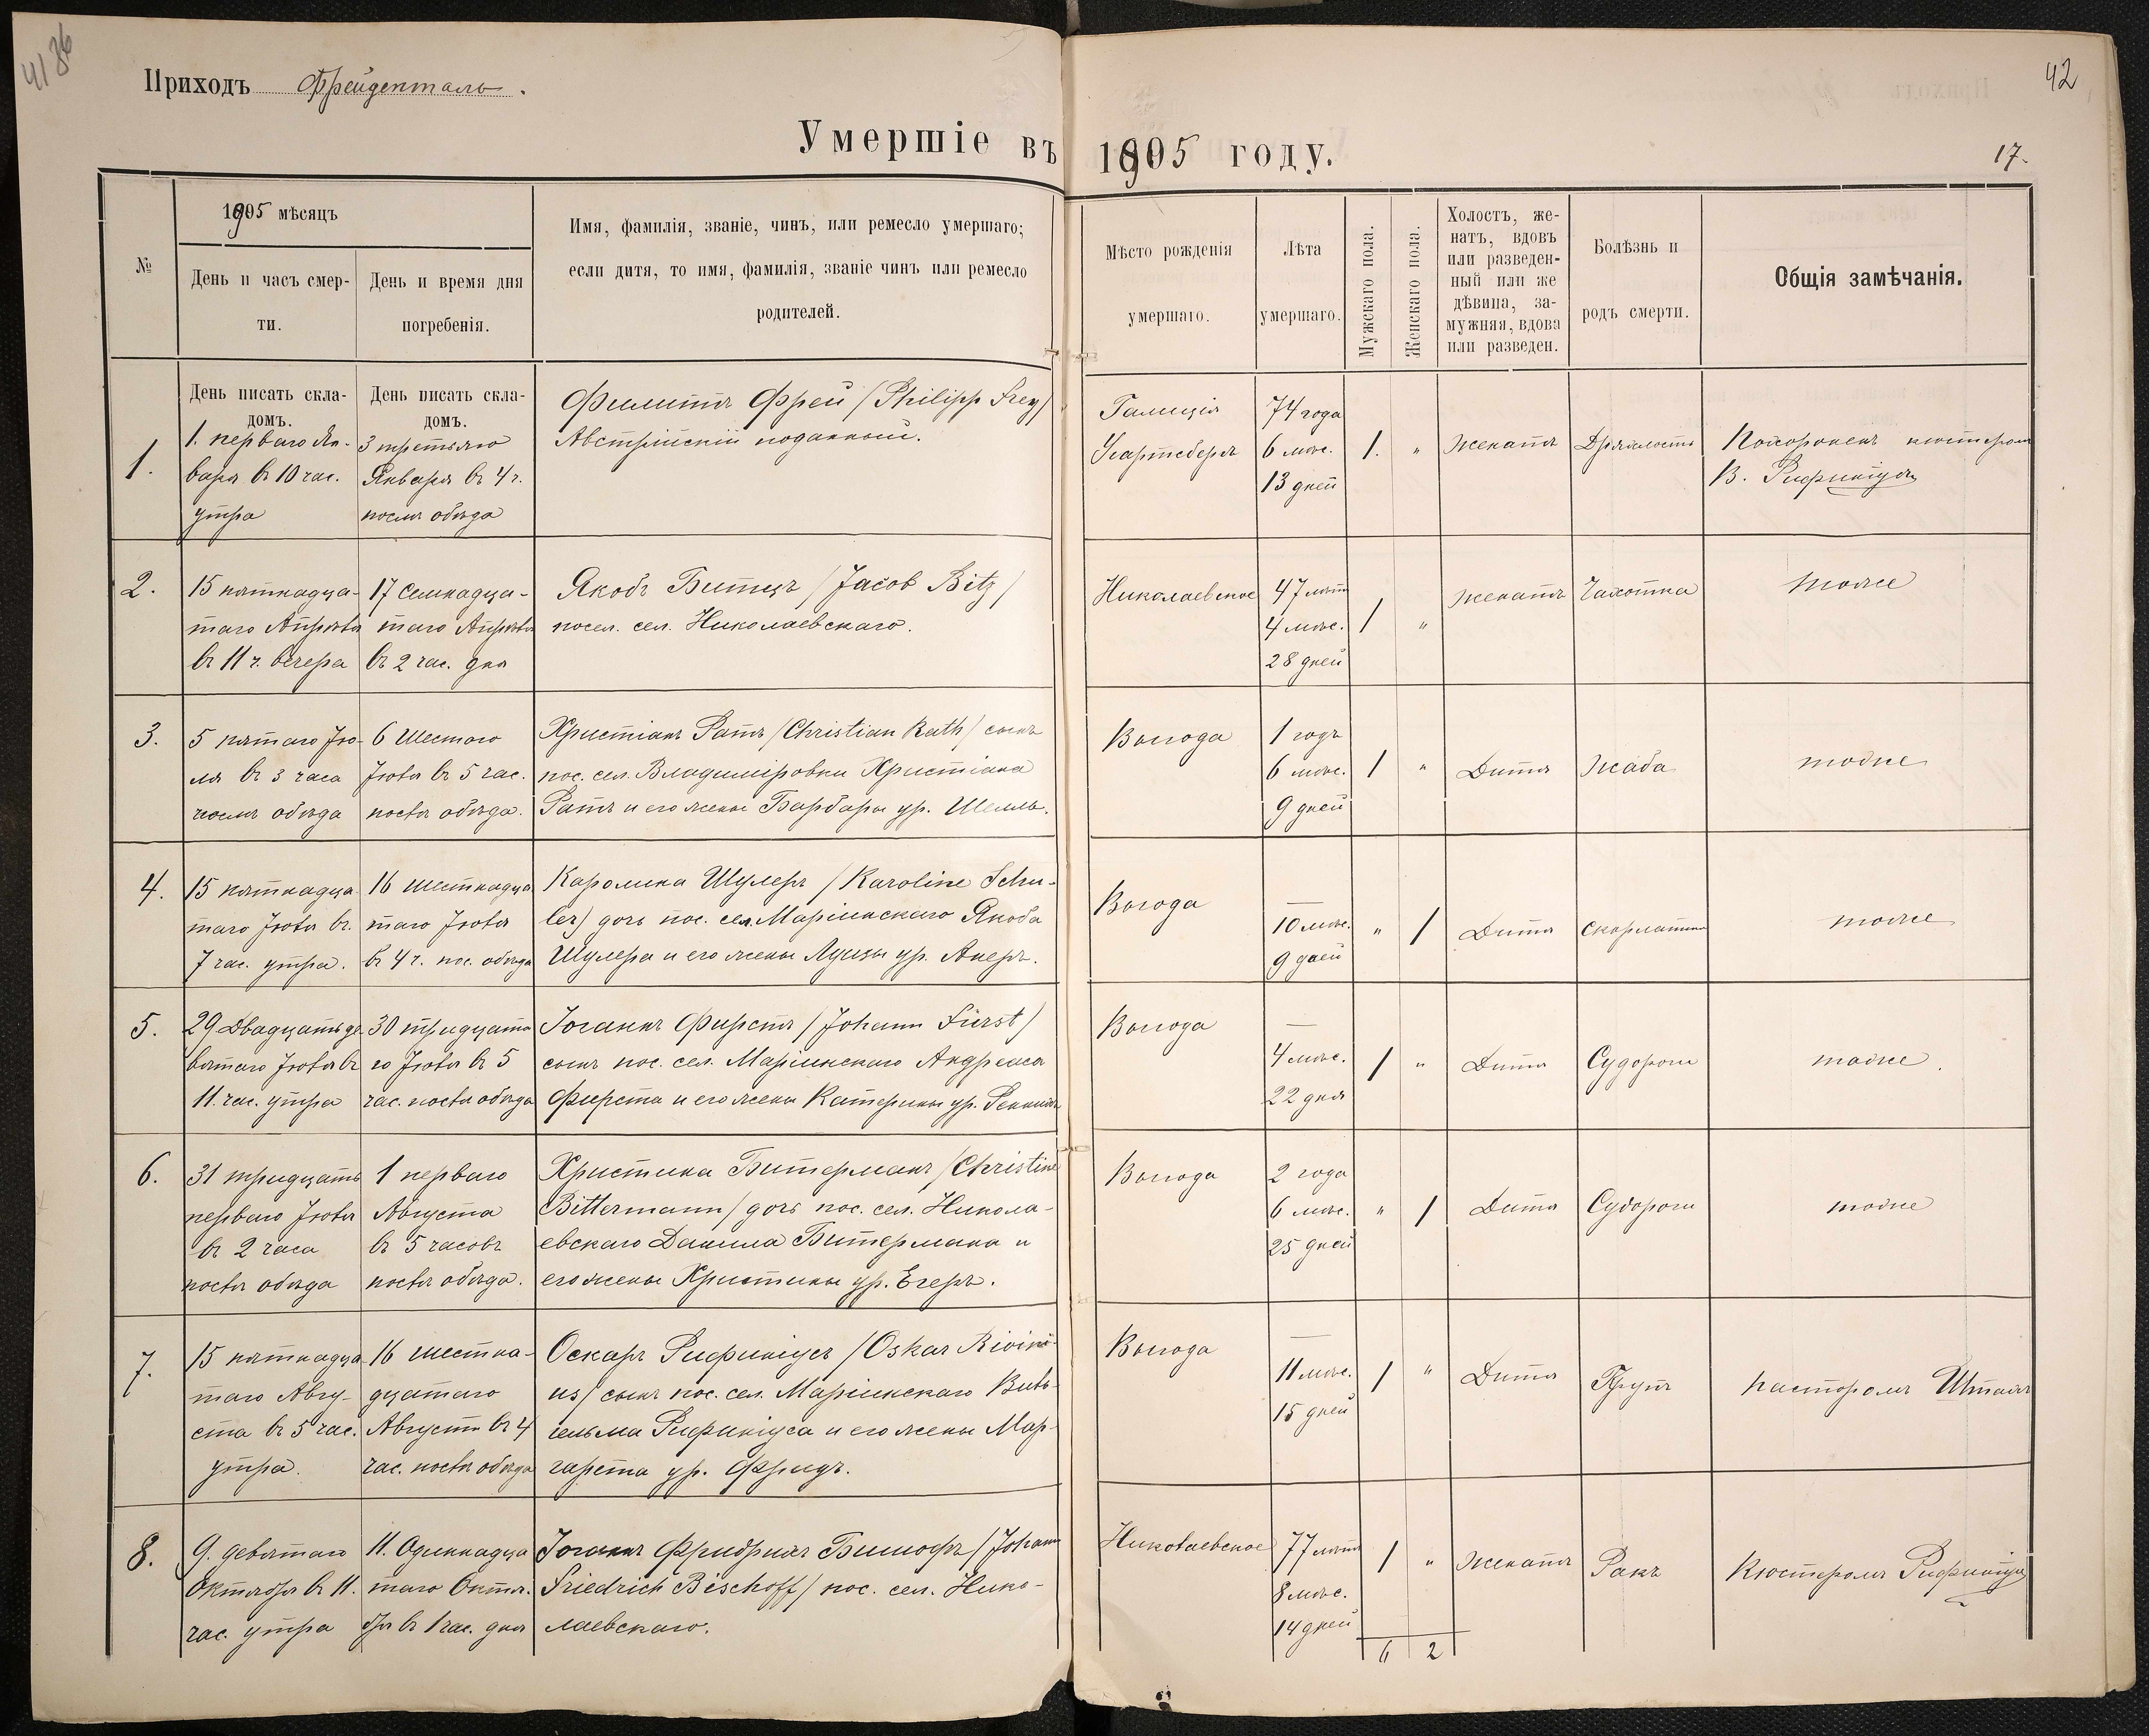 41 36
Приходъ Фрейденталь.
42
Умершіе въ 1905 году.
17.
№
1905 мѣсяцъ
День и часъ смер-
ти.
День и время дня
погребенія.
Имя, фамилія, званіе, чинъ, или ремесло умершаго;
если дитя, то имя, фамилія, званіе чинъ или ремесло
родителей.
Мѣсто рожденія
умершаго.
Лѣта
умершаго.
Мужскаго пола.
Женскаго пола.
Холостъ, же-
натъ, вдовъ
или разведен-
ный или же
дѣвица, за-
мужняя, вдова
или разведен.
Болѣзнь и
родъ смерти.
Общія замѣчанія.
День писать скла-
домъ.
День писать скла-
домъ.
1.
1. перваго Ян-
варя въ 10 час.
утра
3 третьяго
Января въ 4 ч.
послѣ обѣда
Филиппъ Фрей /Philipp Frey/
Австрійскій подданный.
Галиція
74 года
6 мѣс.
13 дней
1.
"
Женатъ
Дряхлость
Похороненъ кюстеромъ
В. Рифиніусъ
2.
15 пятнадца-
таго Апрѣля
въ 11 ч. вечера
17 семнадца-
таго Апрѣля
въ 2 час. дня
Якобъ Битцъ /Jacob Bitz/
посел. сел. Николаевскаго.
Николаевское
47 лѣтъ
4 мѣс.
28 дней
1
"
женатъ
Чахотка
тоже
3.
5 пятаго Ію-
ля въ 3 часа
послѣ обѣда
6 шестого
Іюля въ 5 час.
послѣ обѣда.
Христіанъ Ратъ /Christian Rath/ сынъ
пос. сел. Владиміровки Христіана
Ратъ и его жены Барбары ур. Шелль.
Выгода
1 годъ
6 мѣс.
9 дней
1
"
Дитя
Жаба
тоже
4.
15 пятнадца
таго Іюля въ
7 час. утра.
16 шестнадца
таго Іюля
въ 4 ч. пос. обѣда
Каролина Шулеръ /Karoline Schu-
ler/ дочь пос. сел. Маріинскаго Якоба
Шулера и его жены Луизы ур.
Выгода
—
10 мѣс.
9 дней
"
1
Дитя
Скарлатина
тоже
5.
29 Двадцать де
вятаго Іюля въ
11. час. утра
30 тридцата
го Іюля въ 5
час. послѣ обѣда
Іоганнъ Фирстъ /Johann Fürst/
сынъ пос. сел. Маріинскаго Андреаса
Фирста и его жены Катерины ур.
Выгода
—
4 мѣс.
22 дня
1
"
Дитя
Судороги
тоже.
6.
31 тридцать
перваго Іюля
въ 2 часа
послѣ обѣда
1 перваго
Августа
въ 5 часовъ
послѣ обѣда.
Христина Битерманъ /Christine
Bittermann/ дочь пос. сел. Никола-
евскаго Данила Битермана и
его жены Христины ур. Егеръ.
Выгода
2 года
6 мѣс.
25 дней
"
1
Дитя
Судороги
тоже
7.
15 пятнадца
таго Авгу-
ста въ 5 час.
утра.
16 шестна-
дцатаго
Августа въ 4
час. послѣ обѣда
Оскаръ Рифиніусъ /Oskar Rivini-
us/ сынъ пос. сел. Маріинскаго Виль-
гельма Рифиніуса и его жены Мар-
гарета ур. Фридъ.
Выгода
—
11 мѣс.
15 дней
1
"
Дитя
Крупъ
пасторомъ Шталь
8.
9. девятаго
Октября въ 11.
час. утра
11. Одиннадца
таго Октя-
бря въ 1 час. дня
Іоганнъ Фридрихъ Бишофъ /Johann
Friedrich Bischoff/ пос. сел. Нико-
лаевскаго.
Николаевское
77 лѣтъ
8 мѣс.
14 дней
1
"
женатъ
Ракъ
Кюстеромъ Рифиніусъ
6
2